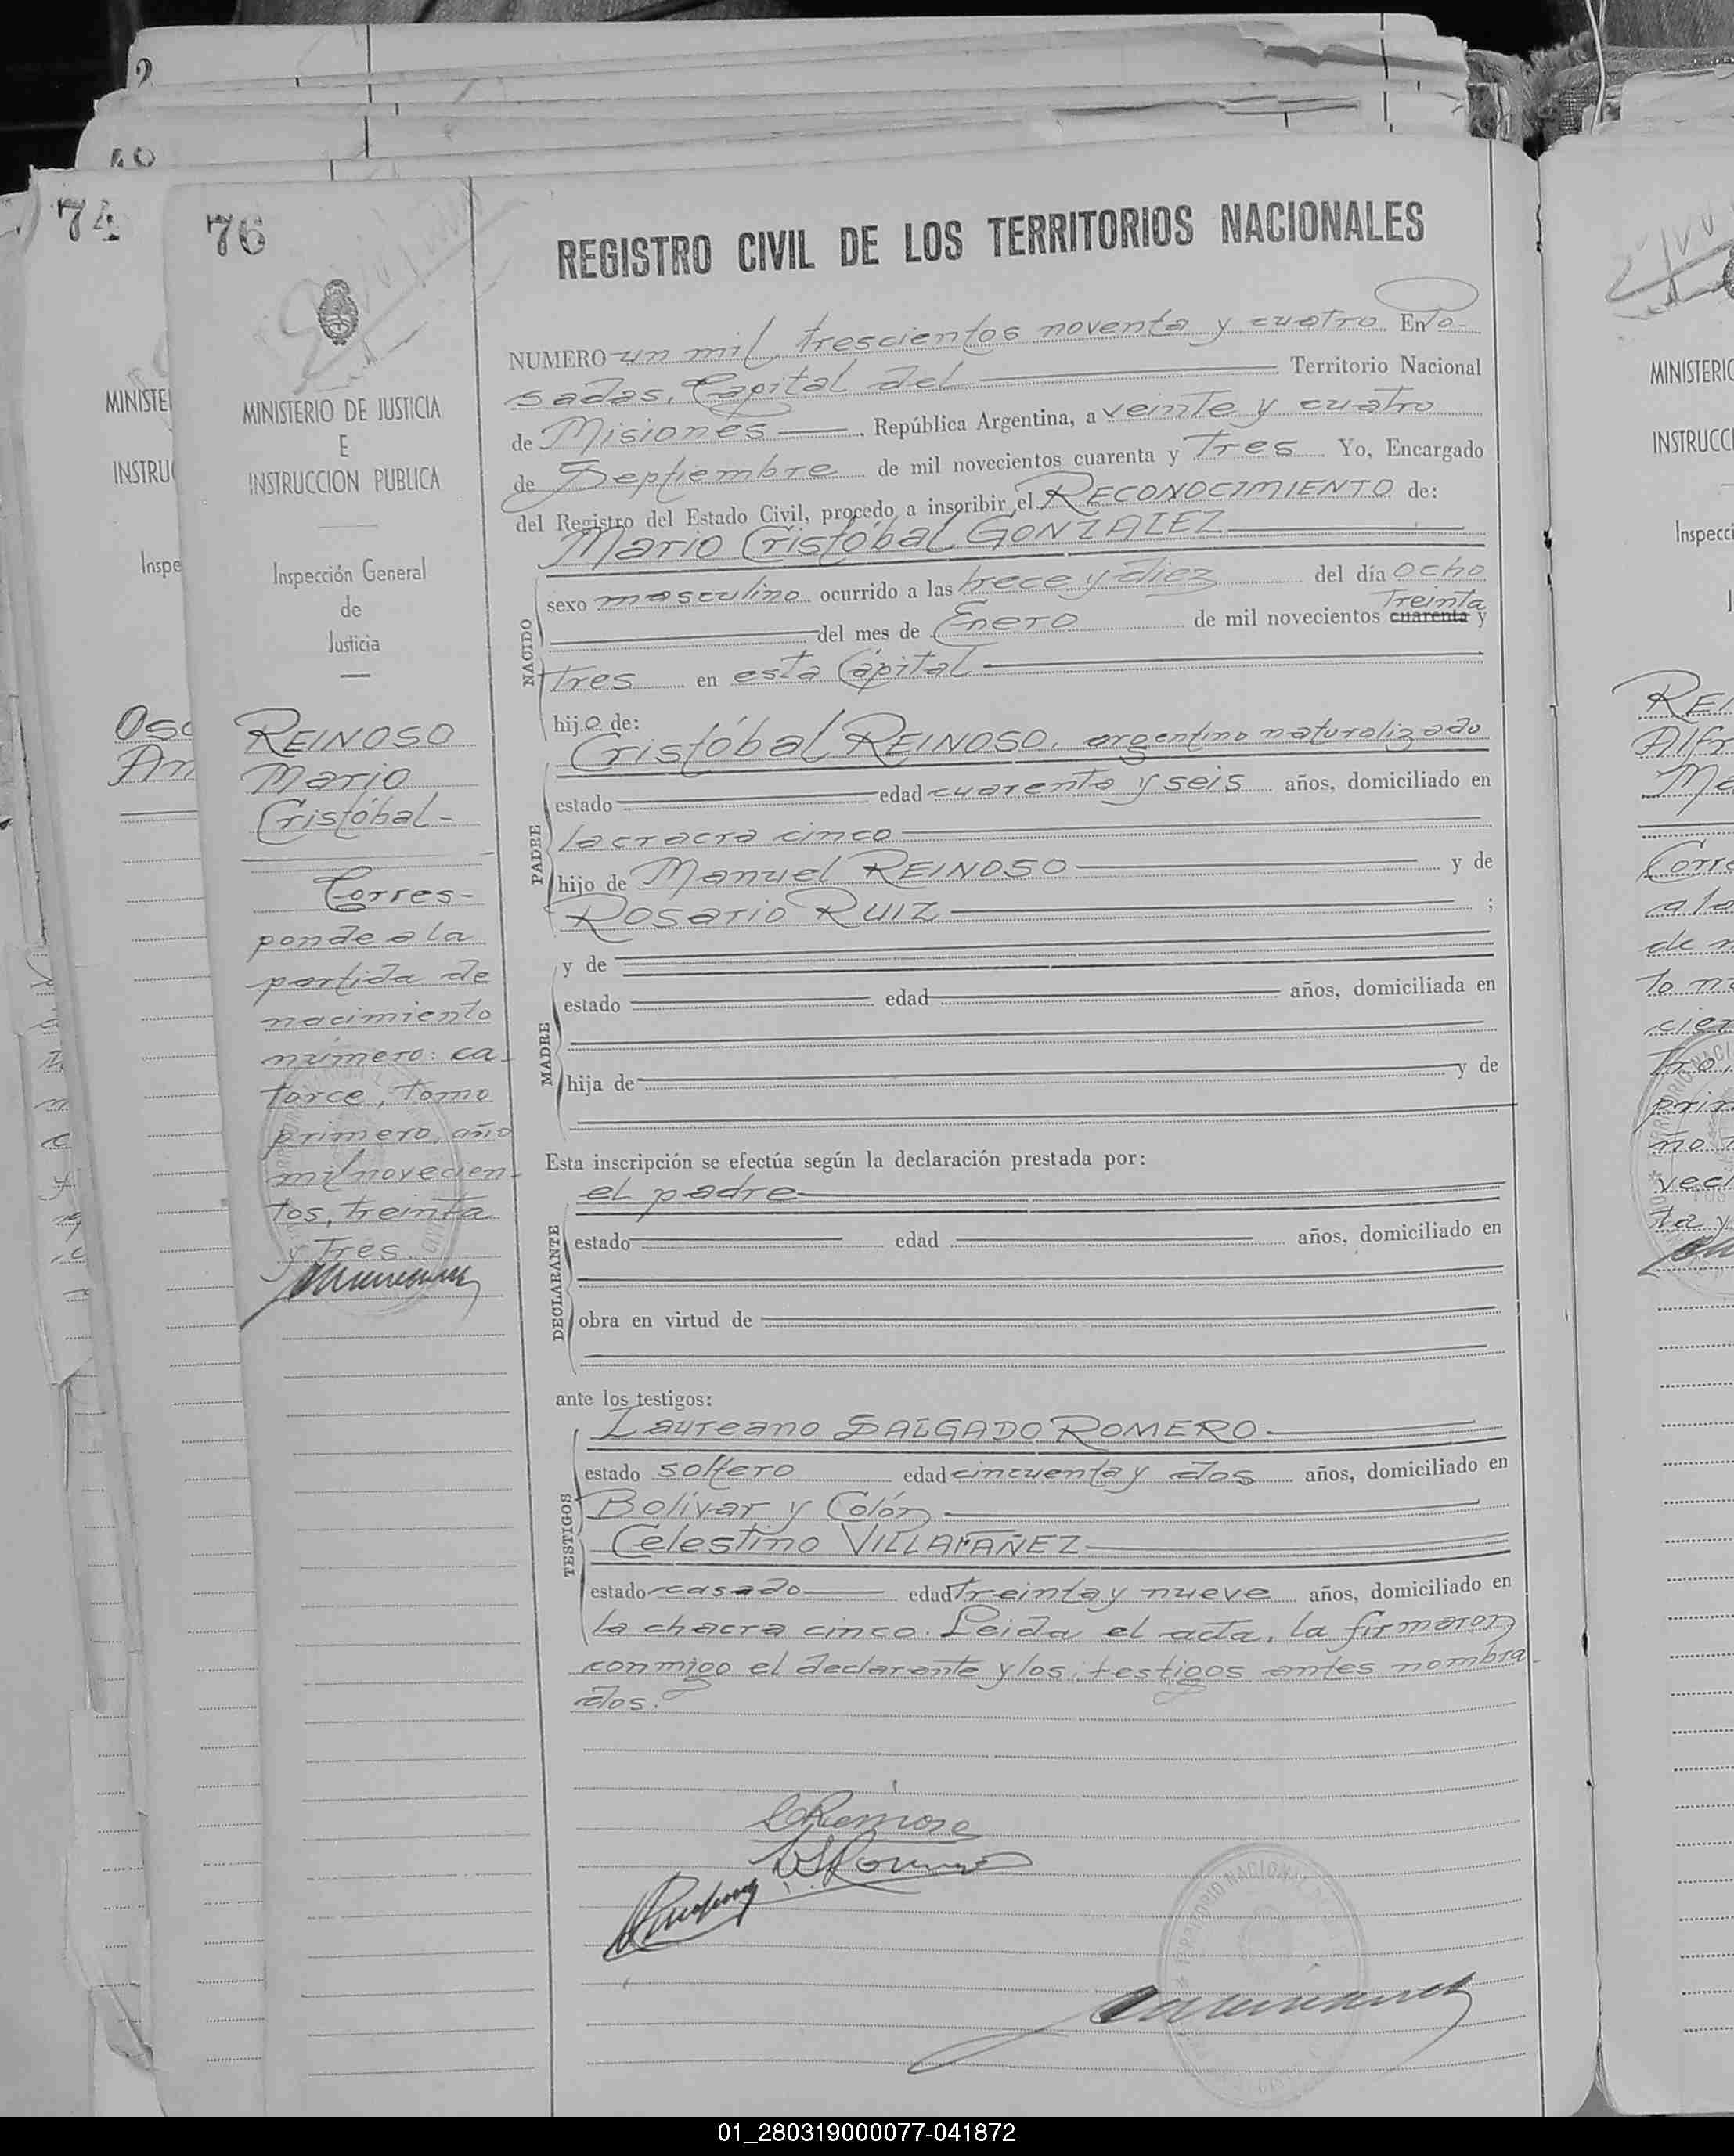 2
48
74
76
REGISTRO CIVIL DE LOS TERRITORIOS NACIONALES
MINISTERIO DE JUSTICIA
E
INSTRUCCION PUBLICA
Inspección General
de
Justicia
REINOSO
Mario
Cristóbal-
Corres-
ponde a la
partida de
nacimiento
número: ca-
torce, Tomo
primero, año
mil novecien-
tos, treinta
y Tres.
NUMERO un mil, trescientos noventa y cuatro En Po-
sadas, Capital del Territorio Nacional
de Misiones República Argentina, a veinte y cuatro
de Septiembre de mil novecientos cuarenta y Tres Yo, Encargado
del Registro del Estado Civil, procedo a inscribir el RECONOCIMIENTO de:
Mario Cristóbal GONZALEZ
NACIDO
sexo masculino ocurrido a las trece y diez del día ocho
Treinta
del mes de Enero de mil novecientos cuarenta y
Tres en esta Cápital
hijo de:
Cristóbal REINOSO, argentino naturalizado
PADRE
estado edad cuarenta y seis años, domiciliado en
la cracra cinco
hijo de Manuel REINOSO y de
Rosario RUIZ ;
y de
MADRE
estado edad años, domiciliada en
hija de y de
Esta inscripción se efectúa según la declaración prestada por:
el padre
DECLARANTE
estado edad años, domiciliado en
obra en virtud de
ante los testigos:
Laureano SALGADO ROMERO
TESTIGOS
estado soltero edad cincuenta y dos años, domiciliado en
Bolívar y Colón
Celestino VILLAFAÑEZ
estado casado edad Treinta y nueve años, domiciliado en
la chacra cinco. Leida el acta, la firmaron
conmigo el declarante y los testigos antes nombra-
dos.
CReinoso
01_280319000077-041872